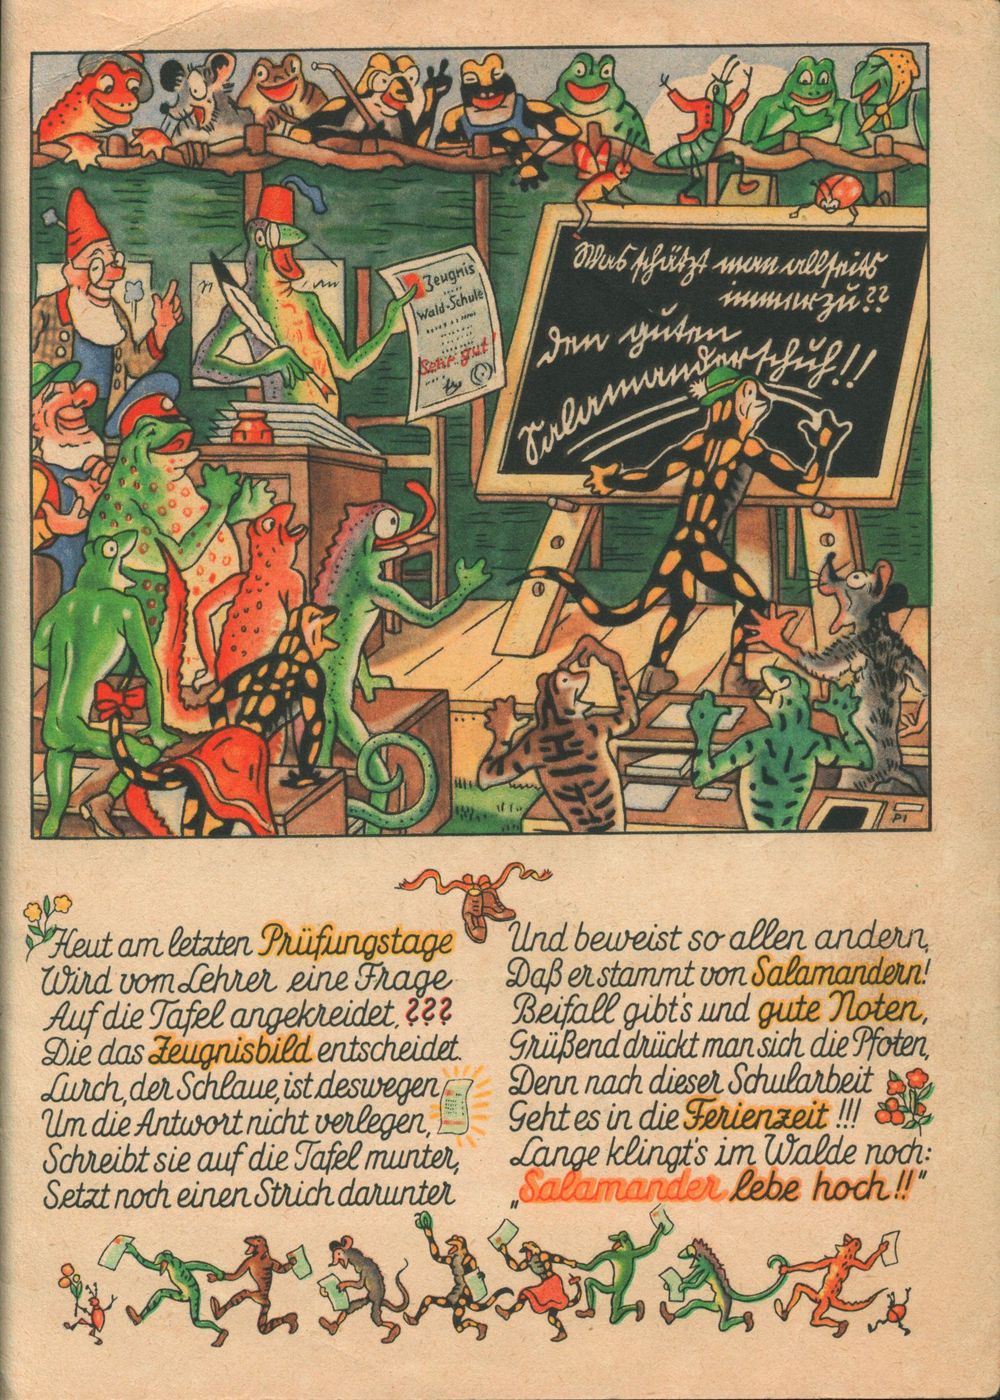 Zeugnis
Wald-Schule
Sehr gut
Was schätzt man allseits
immerzu??
Den guten
Salamanderschuh!!
PI
Heut am letzten Prüfungstage
Wird vom Lehrer eine Frage
Auf die Tafel angekreidet, ???
Die das Zeugnisbild entscheidet.
Lurch, der Schlaue, ist deswegen
Um die Antwort nicht verlegen,
Schreibt sie auf die Tafel munter,
Setzt noch einen Strich darunter
Und beweist so allen andern,
Daß er stammt von Salamandern!
Beifall gibt's und gute Noten,
Grüßend drückt man sich die Pfoten,
Denn nach dieser Schularbeit
Geht es in die Ferienzeit!!!
Lange klingt's im Walde noch:
„Salamander lebe hoch!!"